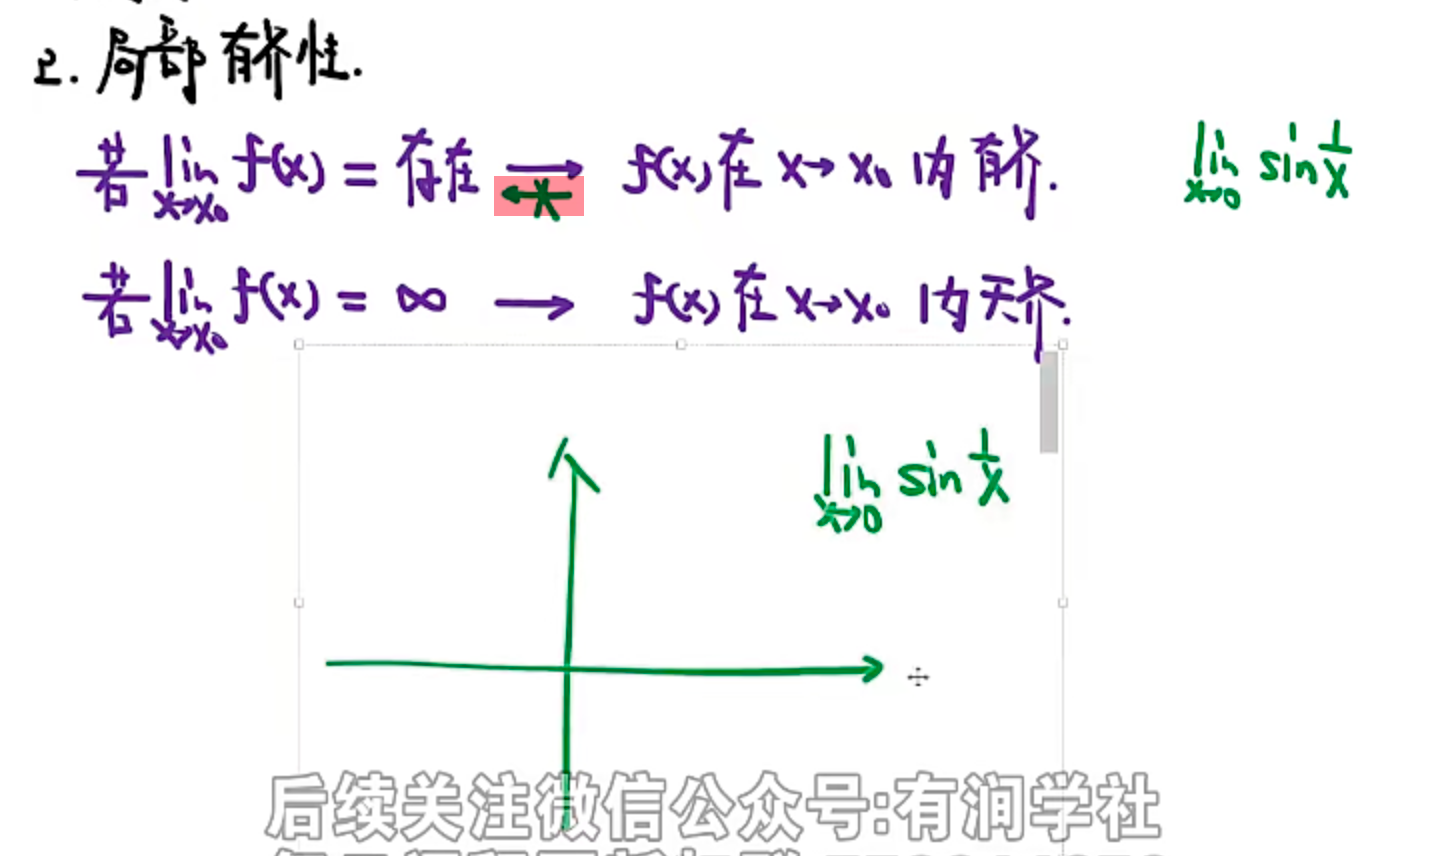 2. 局部有界性.
若 lim x→x₀ f(x) = 存在 → f(x)在 x→x₀ 内有界.
lim x→0 sin 1/x
若 lim x→x₀ f(x) = ∞ → f(x)在 x→x₀ 内无界.
lim x→0 sin 1/x
后续关注微信公众号:有润学社